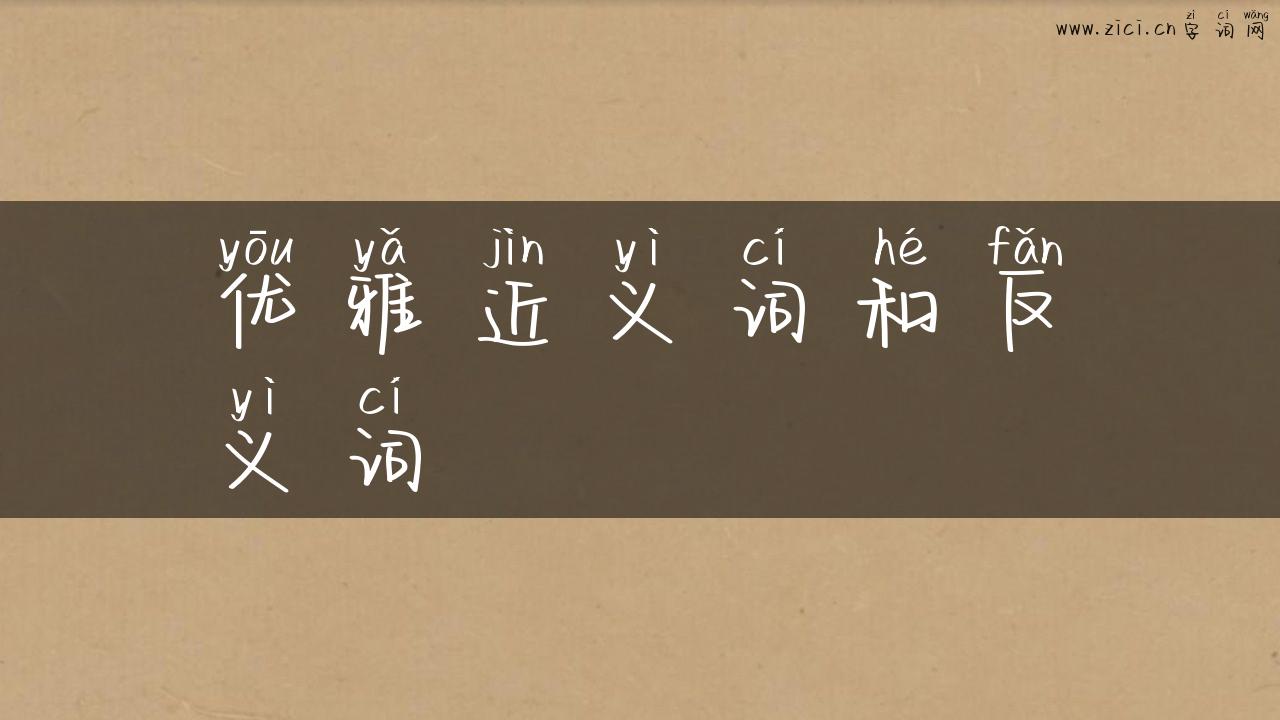 zì cí wǎng
www.zici.cn 字 词 网
yōu yǎ jìn yì cí hé fǎn
优 雅 近 义 词 和 反
yì cí
义 词